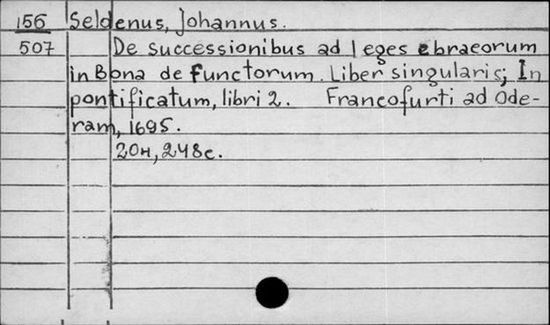 156 Seldenus, Johannus.
507 De successionibus ad leges ebraeorum
in Bona de functorum. Liber singularis; In
pontificatum, libri 2. Francofurti ad Ode-
ram, 1695.
20н, 248с.